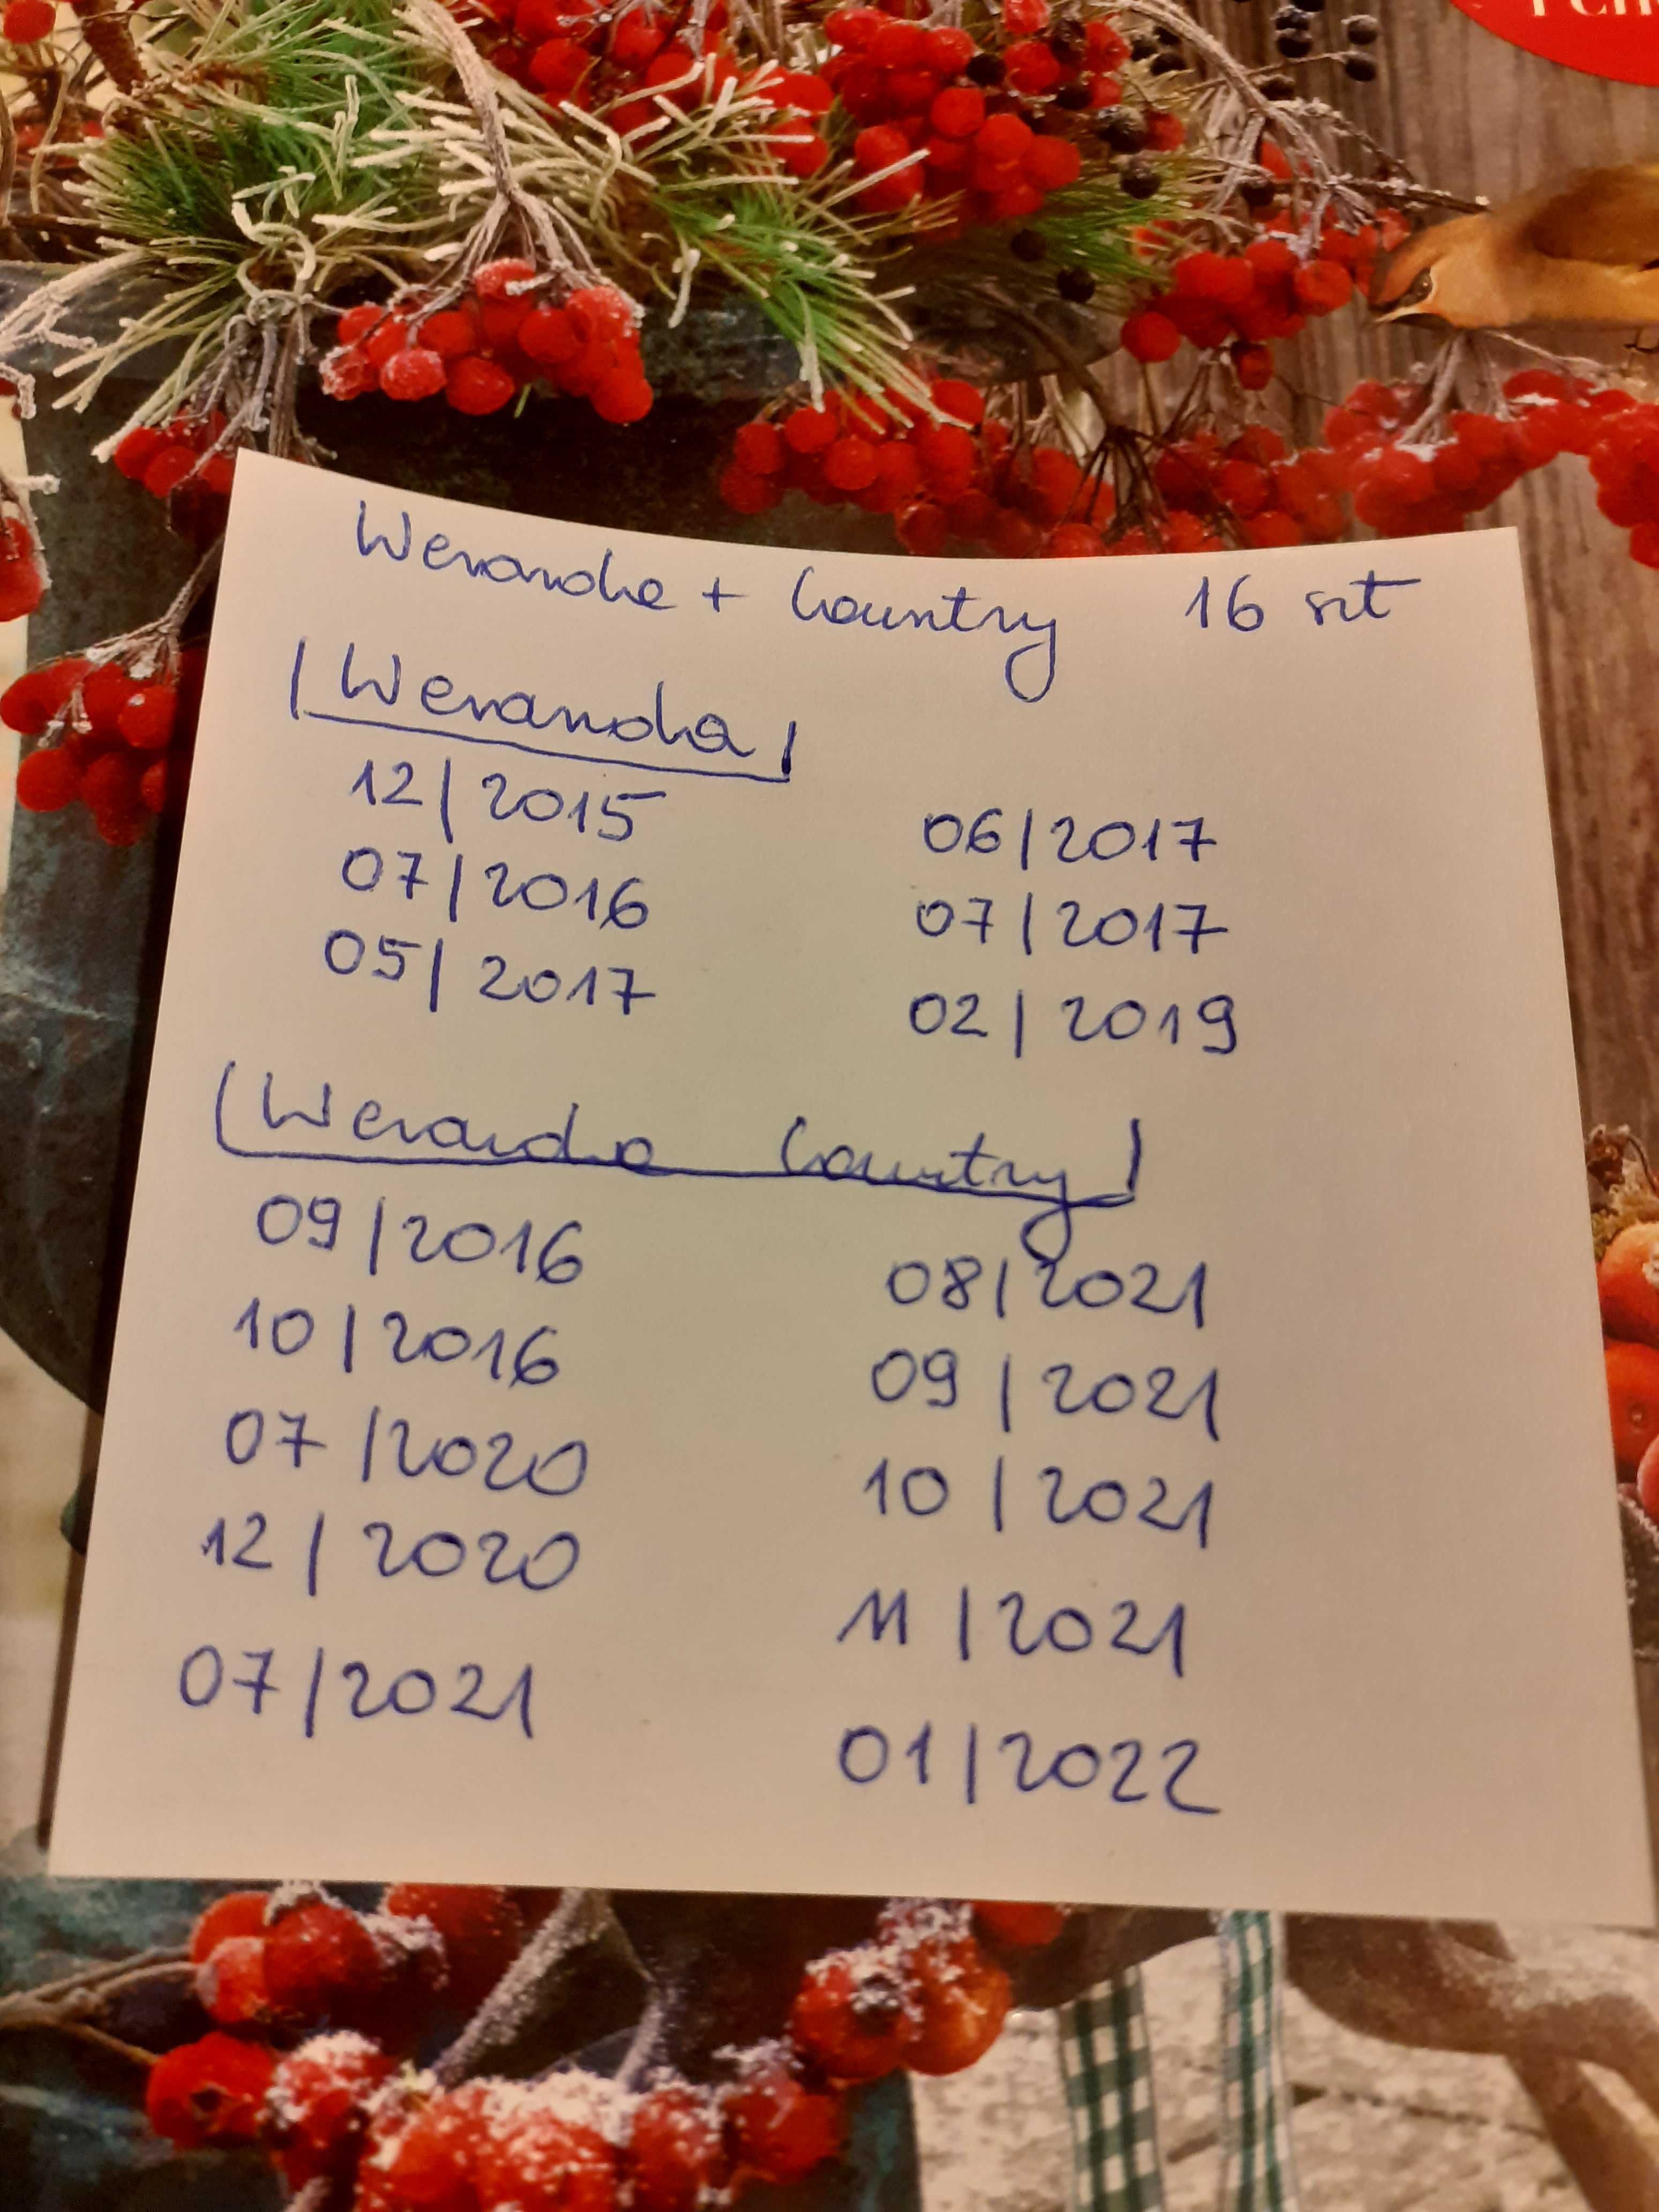 Weranda + Country 16 szt
Weranda
12/2015 06/2017
07/2016 07/2017
05/2017 02/2019
Weranda Country
09/2016 08/2021
10/2016 09/2021
07/2020 10/2021
12/2020 11/2021
07/2021 01/2022